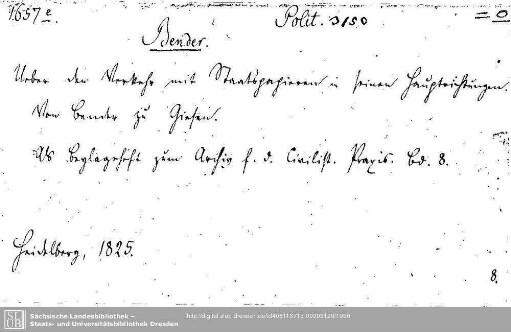 1657e. Polit. 3150 = 0
Bender.
Ueber den Verkehr mit Staatspapieren in seinen Hauptrichtungen.
Von Bender zu Giesen.
Als Beylageheft zum Archiv f. d. Civilist. Praxis. Bd. 8.
Heidelberg, 1825.
8.
Sächsische Landesbibliothek –
Staats- und Universitätsbibliothek Dresden